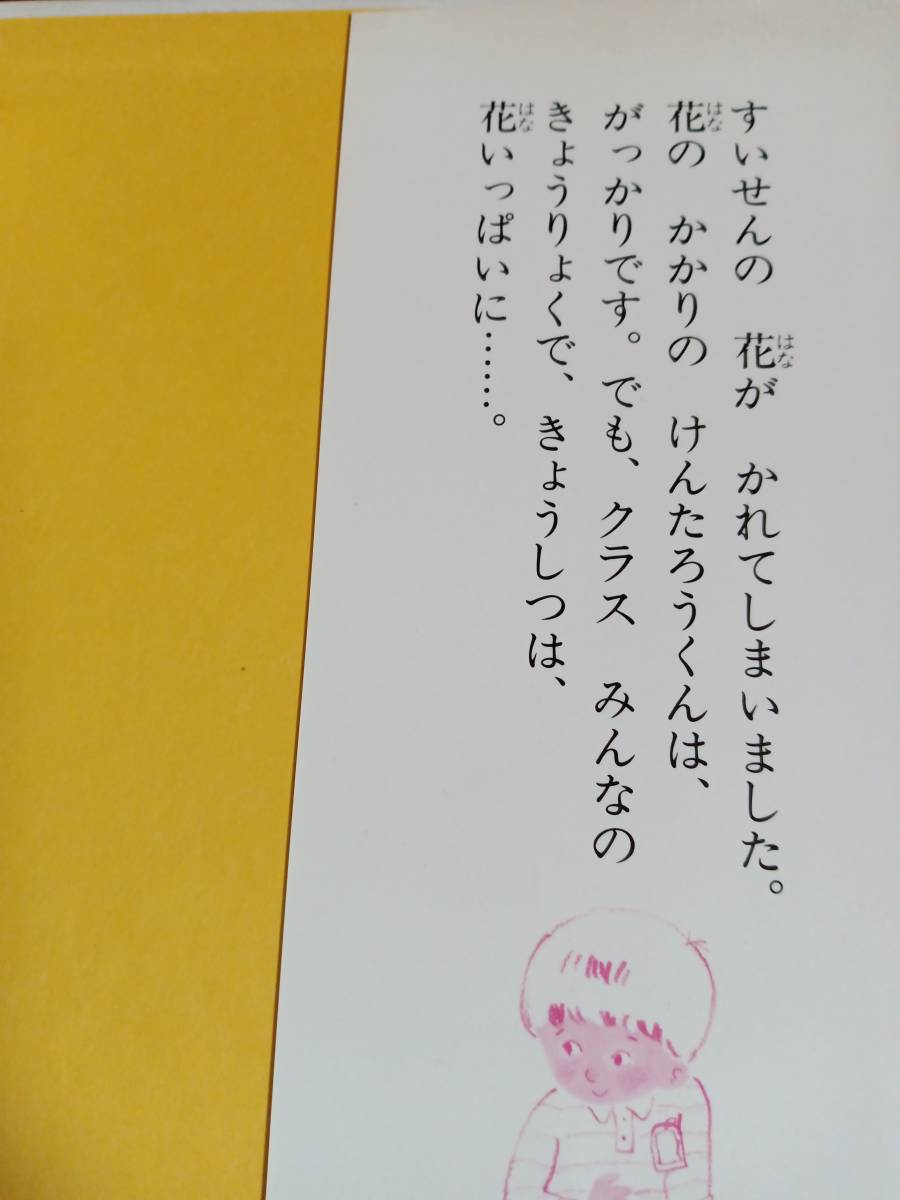 すいせんの　花が　かれてしまいました。
花の　かかりの　けんたろうくんは、
がっかりです。でも、クラス　みんなの
きょうりょくで、きょうしつは、
花いっぱいに……。